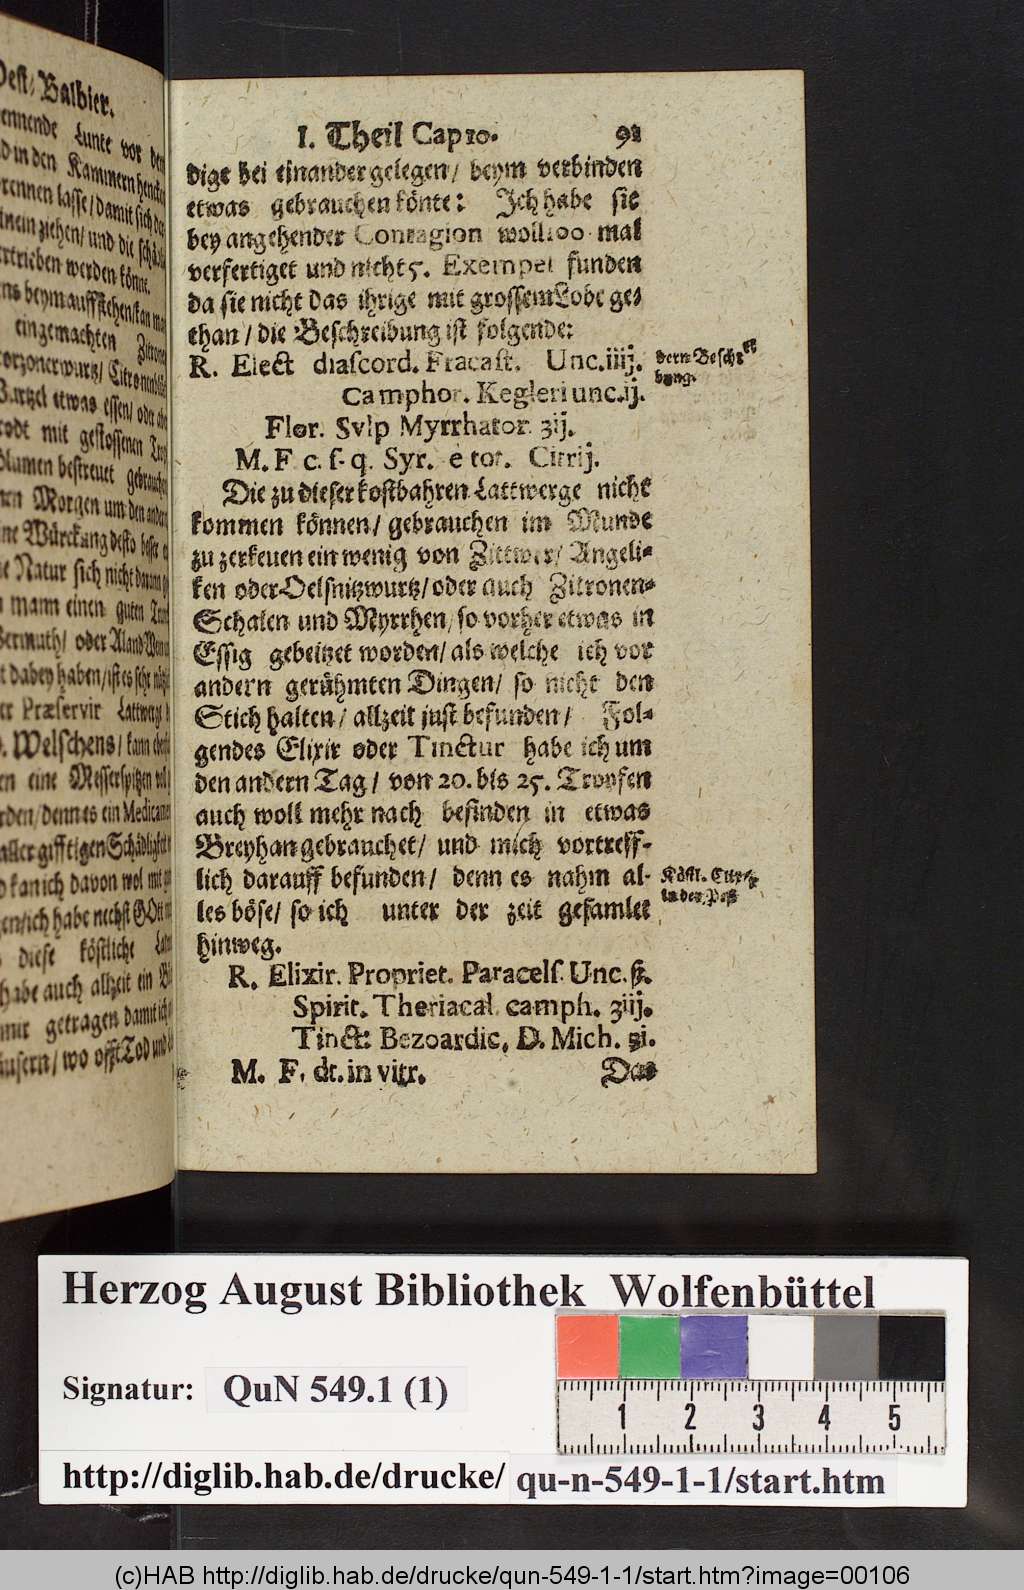 Pest/ Balbier.
ennende Lunte vor den
d in den Kammern
rennen lasse/ damit sich
einem ziehen/ und die
ertrieben werden könne.
ns beym auffstehen kan man
eingemachten
Citronen
Wurtzel etwas essen/ oder
rodt mit gestossenen
blumen bestreuet
Morgen um den andern
ne Würckung desto besser
e Natur sich nicht daran
mann einen guten
Wermuth/ oder Aland Wein
t dabey haben/ ist es sehr
er Præservir Lattwerge
D. Welschens/ kann
en eine Messerspitzen
rden/ denn es ein
aller gifftigen
d kan ich davon wol mit
gen/ ich habe nechst GOtt
diese köstliche
habe auch allzeit ein
mir getragen damit ich
äusern/ wo offt Tod und
I. Theil Cap 10. 91
dige bei einander gelegen/ beym verbinden
etwas gebrauchen könte: Ich habe sie
bey angehender Contagion woll 100 mal
verfertiget und nicht 5. Exempel funden
da sie nicht das ihrige mit grossem Lobe ge-
than/ die Beschreibung ist folgende:
R. Elect diascord. Fracast. Unc. iiij.
deren Beschr
bung.
Camphor. Kegleri unc. ij.
Flor. Sulp Myrrhator. ʒij.
M. F c. ſ. q. Syr. è tot. Citrij.
Die zu dieser kostbahren Lattwerge nicht
kommen können/ gebrauchen im Munde
zu zerkeuen ein wenig von Zittwer/ Angeli-
ken oder Oelsnitzwurtz/ oder auch Zitronen-
Schalen und Myrrhen/ so vorher etwas in
Essig gebeitzet worden/ als welche ich vor
andern gerühmten Dingen/ so nicht den
Stich halten/ allzeit just befunden/ Fol-
gendes Elixir oder Tinctur habe ich um
den andern Tag/ von 20. bis 25. Tropfen
auch woll mehr nach befinden in etwas
Breyhan gebrauchet/ und mich vortreff-
lich darauff befunden/ denn es nahm al-
Köstl. Elixir
in der Pest
les böse/ so ich unter der zeit gesamlet
hinweg.
R. Elixir. Propriet. Paracelſ. Unc. ß.
Spirit. Theriacal camph. ʒiij.
Tinct: Bezoardic. D. Mich. ʒi.
M. F. dt. in vitr. Das
Herzog August Bibliothek Wolfenbüttel
Signatur: QuN 549.1 (1)
1 2 3 4 5
http://diglib.hab.de/drucke/ qu-n-549-1-1/start.htm
(c)HAB http://diglib.hab.de/drucke/qun-549-1-1/start.htm?image=00106